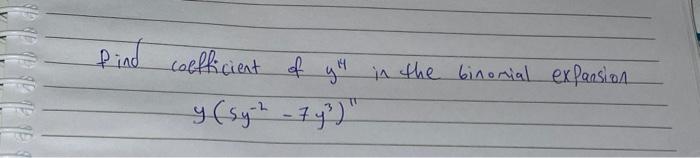 find coefficient of y¹⁴ in the binomial expansion
y(5y⁻² - 7y³)¹¹